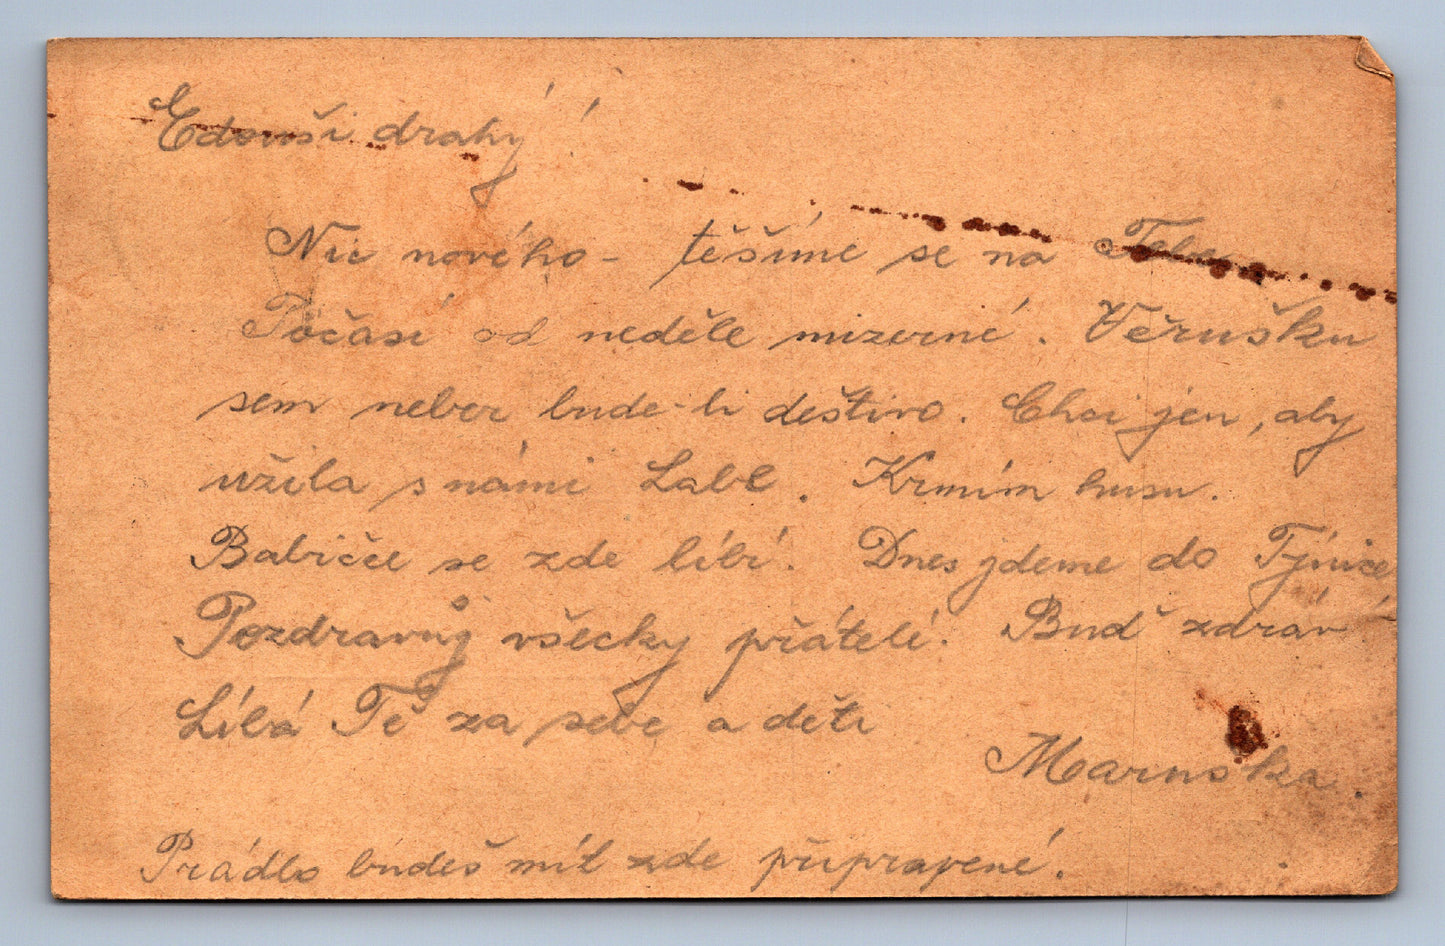 Edouši drahý!
Nic nového - těšíme se na Tebe
Počasí od neděle mizerné. Věrušku
sem neber bude-li deštivo. Chci jen, aby
užila s námi Labe. Krmím husu.
Babičce se zde líbí. Dnes jdeme do Týnice
Pozdravuj všecky přátelé. Buď zdráv
Líbá Tě za sebe a děti
Maruška.
Prádlo budeš mít zde připravené.